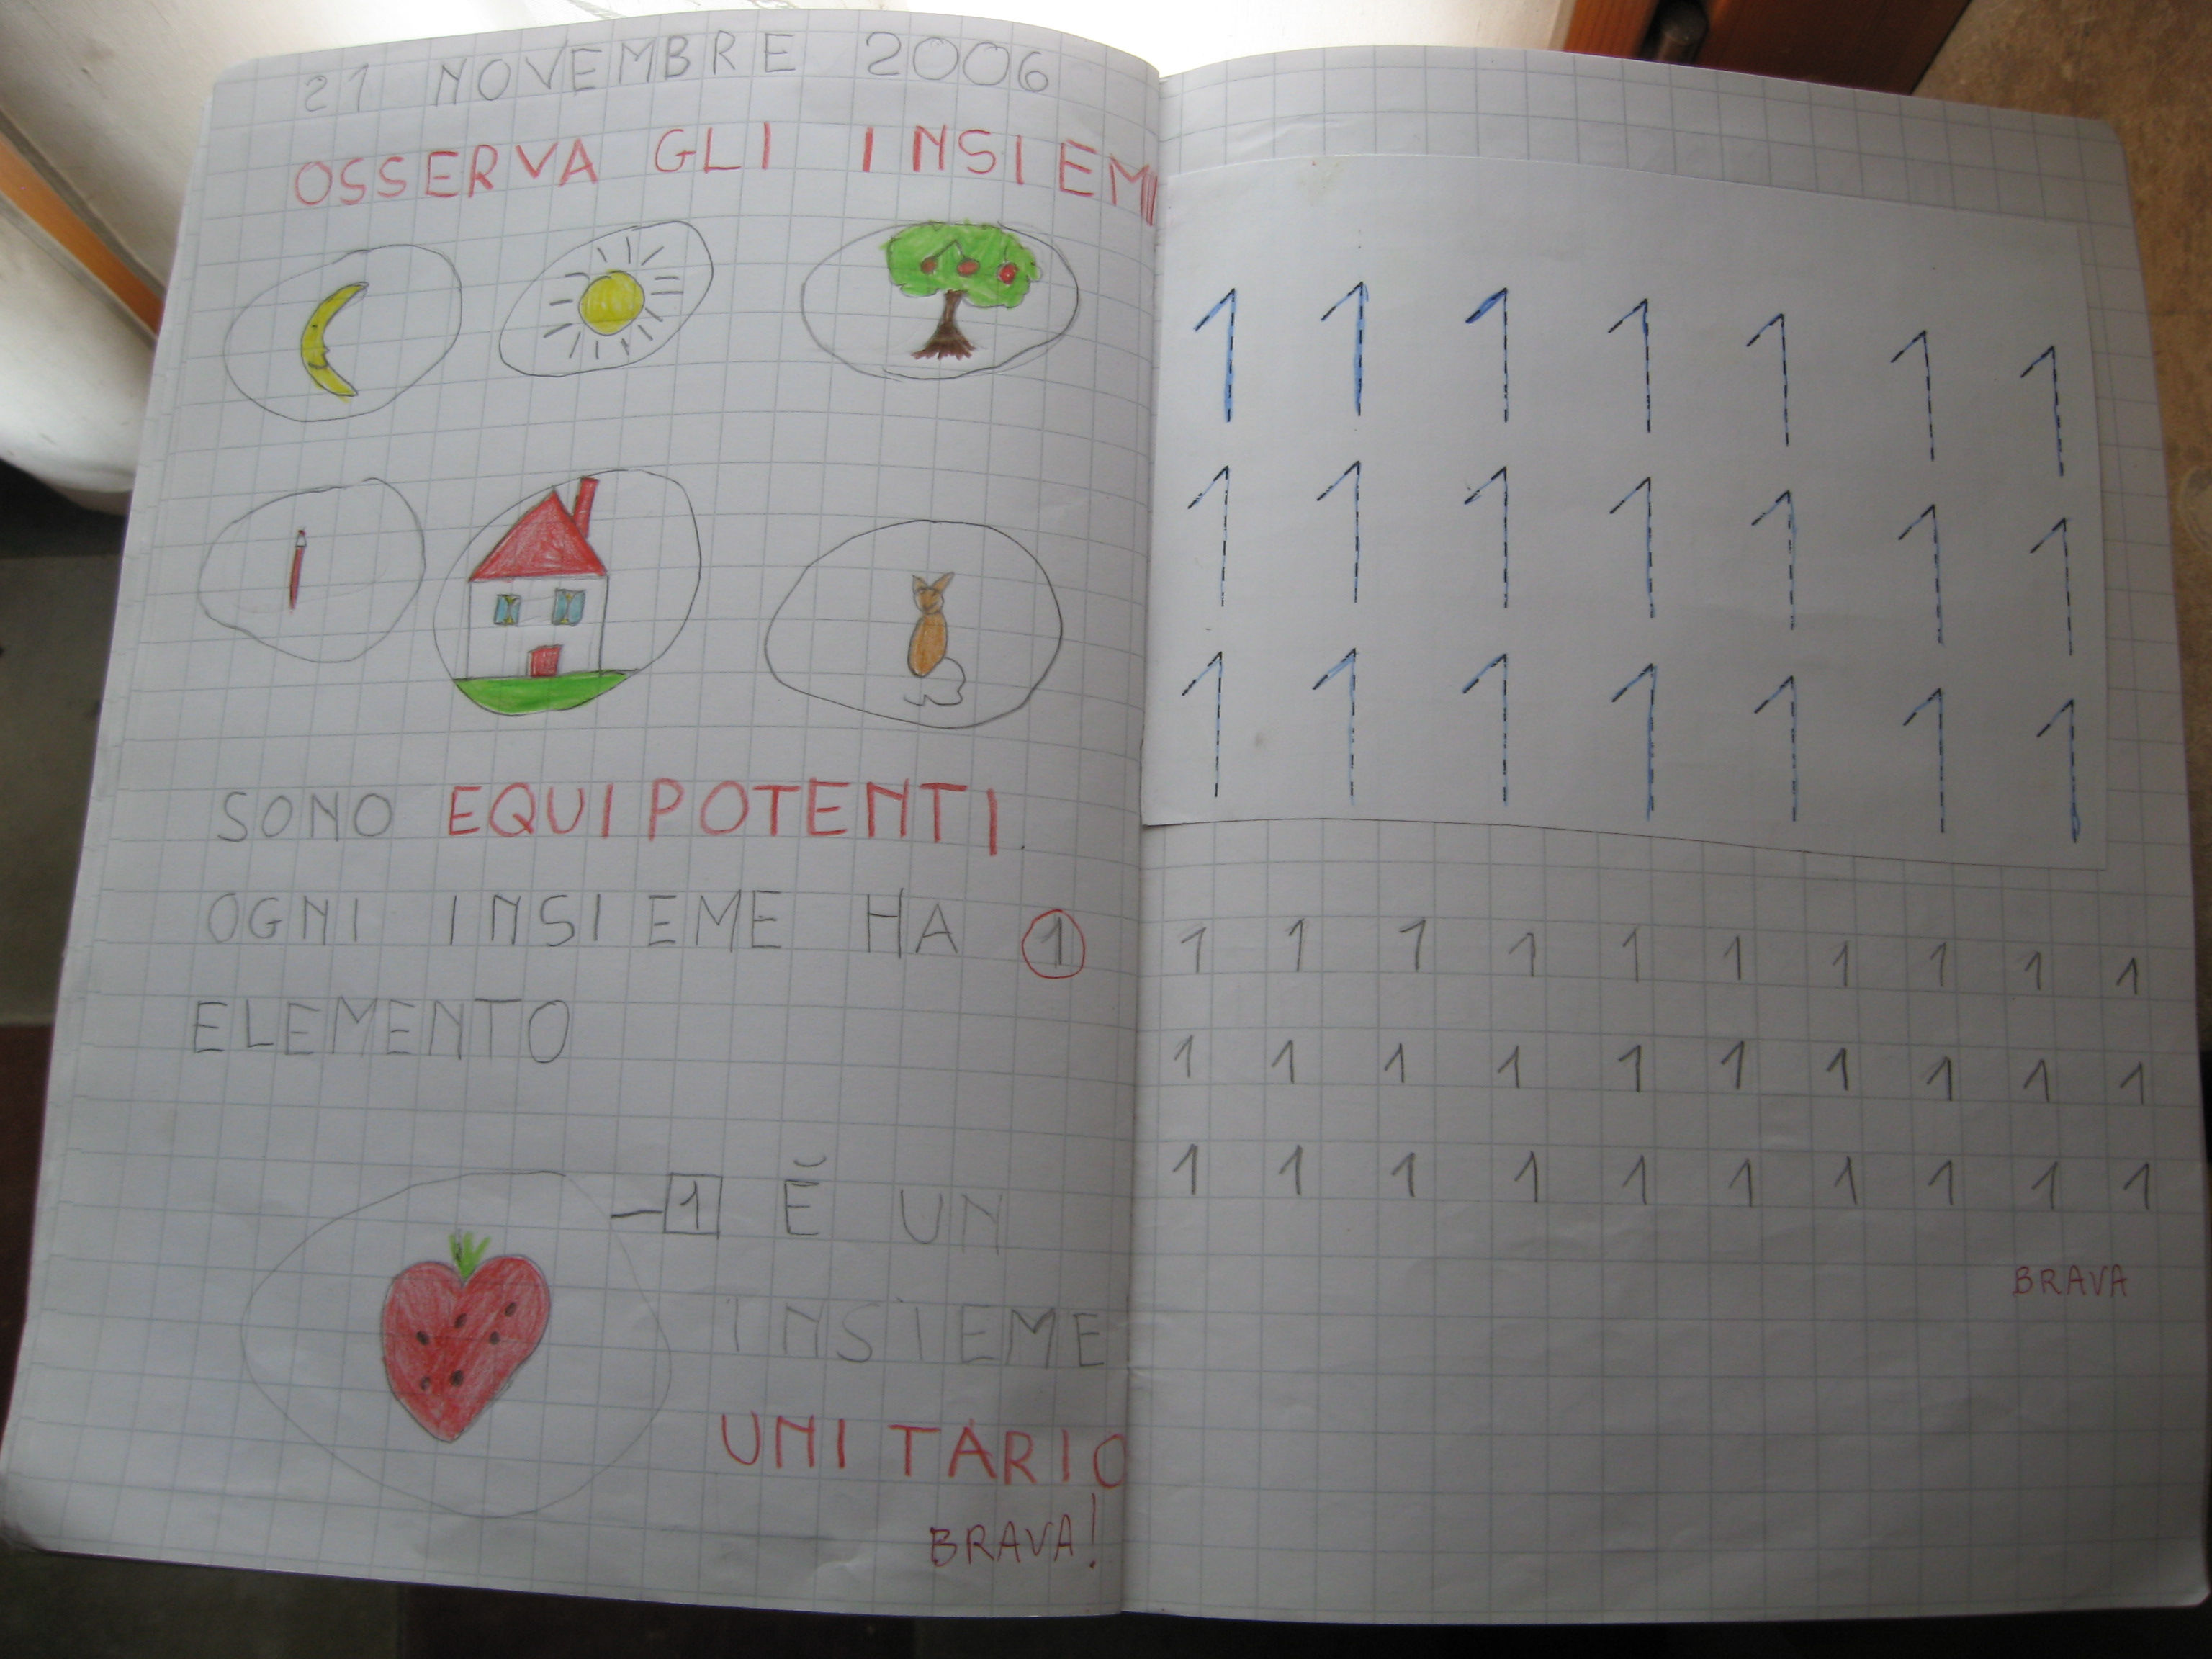 21 NOVEMBRE 2006
OSSERVA GLI INSIEMI
SONO EQUIPOTENTI.
OGNI INSIEME HA 1
ELEMENTO
1 È UN
INSIEME
UNITARIO
BRAVA!
1 1 1 1 1 1 1
1 1 1 1 1 1 1
1 1 1 1 1 1 1
1 1 1 1 1 1 1 1 1 1
1 1 1 1 1 1 1 1 1 1
1 1 1 1 1 1 1 1 1 1
BRAVA